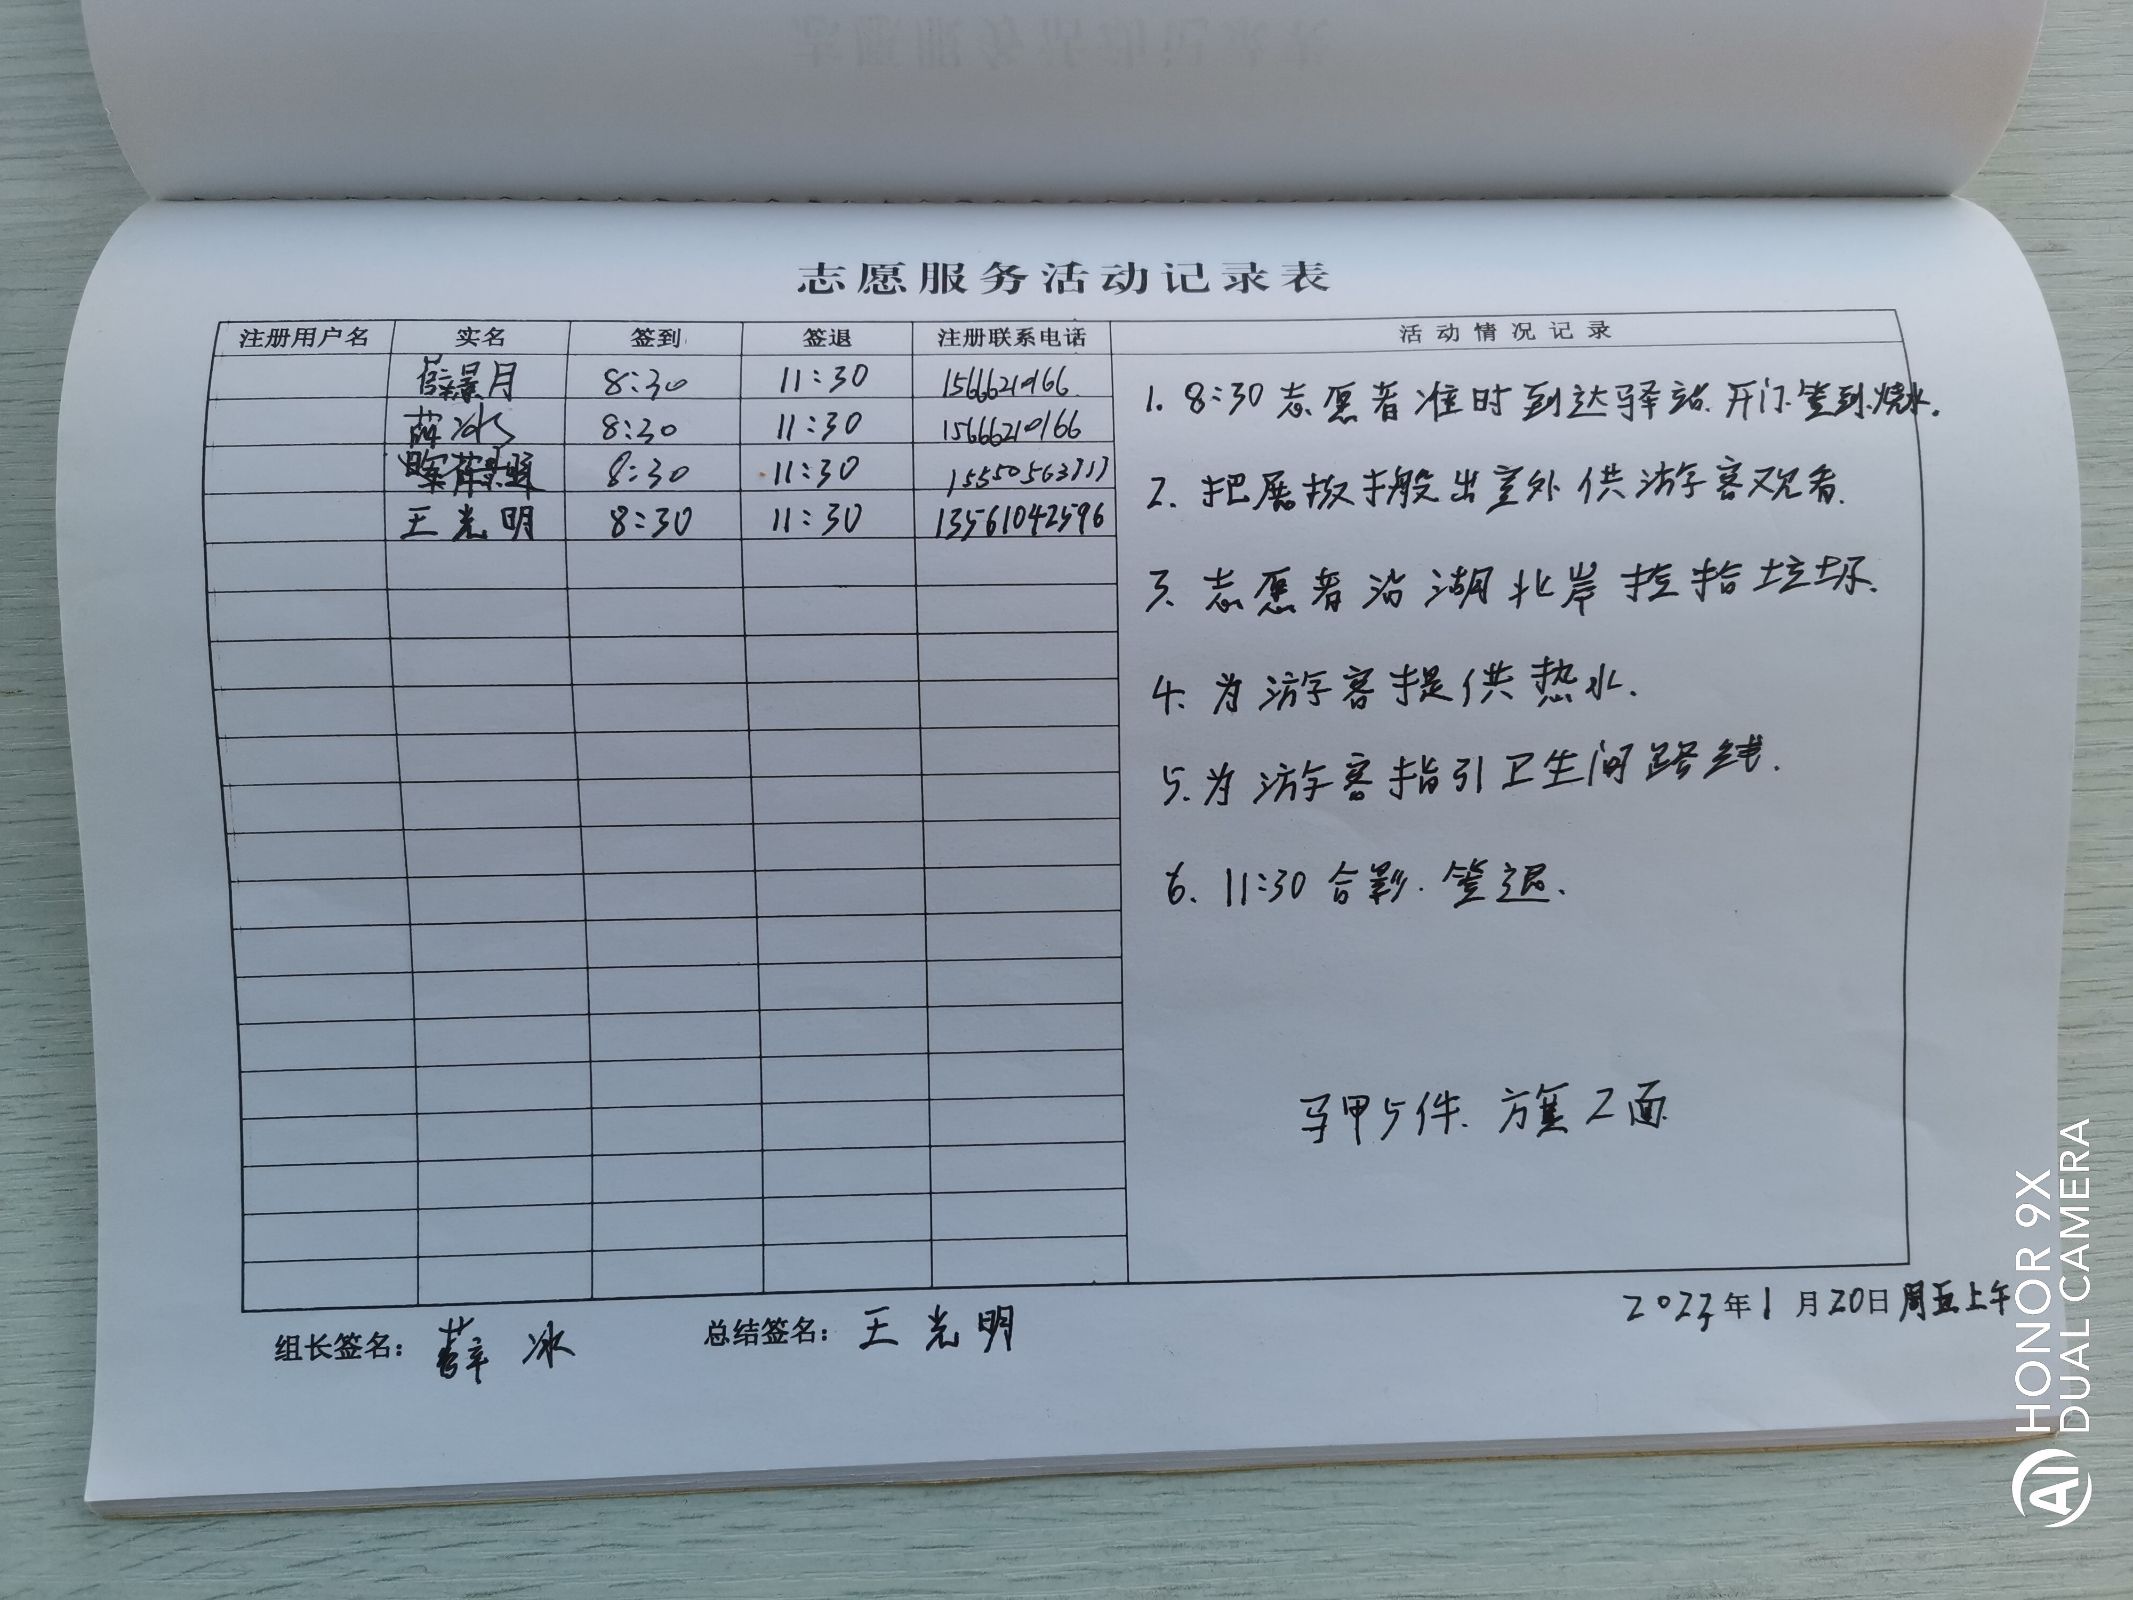 志愿服务活动记录表
注册用户名 实名 签到 签退 注册联系电话 活动情况记录
景月 8:30 11:30 15666210166
薛冰 8:30 11:30 15666210166
8:30 11:30 15550563717
王光明 8:30 11:30 13561042596
1. 8:30志愿者准时到达驿站.开门.签到.烧水.
2. 把展板搬出室外供游客观看.
3. 志愿者沿湖北岸捡拾垃圾.
4. 为游客提供热水.
5. 为游客指引卫生间路线.
6. 11:30合影.签退.
马甲5件. 方集2面
2023年1月20日周五上午
组长签名: 薛冰 总结签名: 王光明
HONOR 9X
DUAL CAMERA
AI